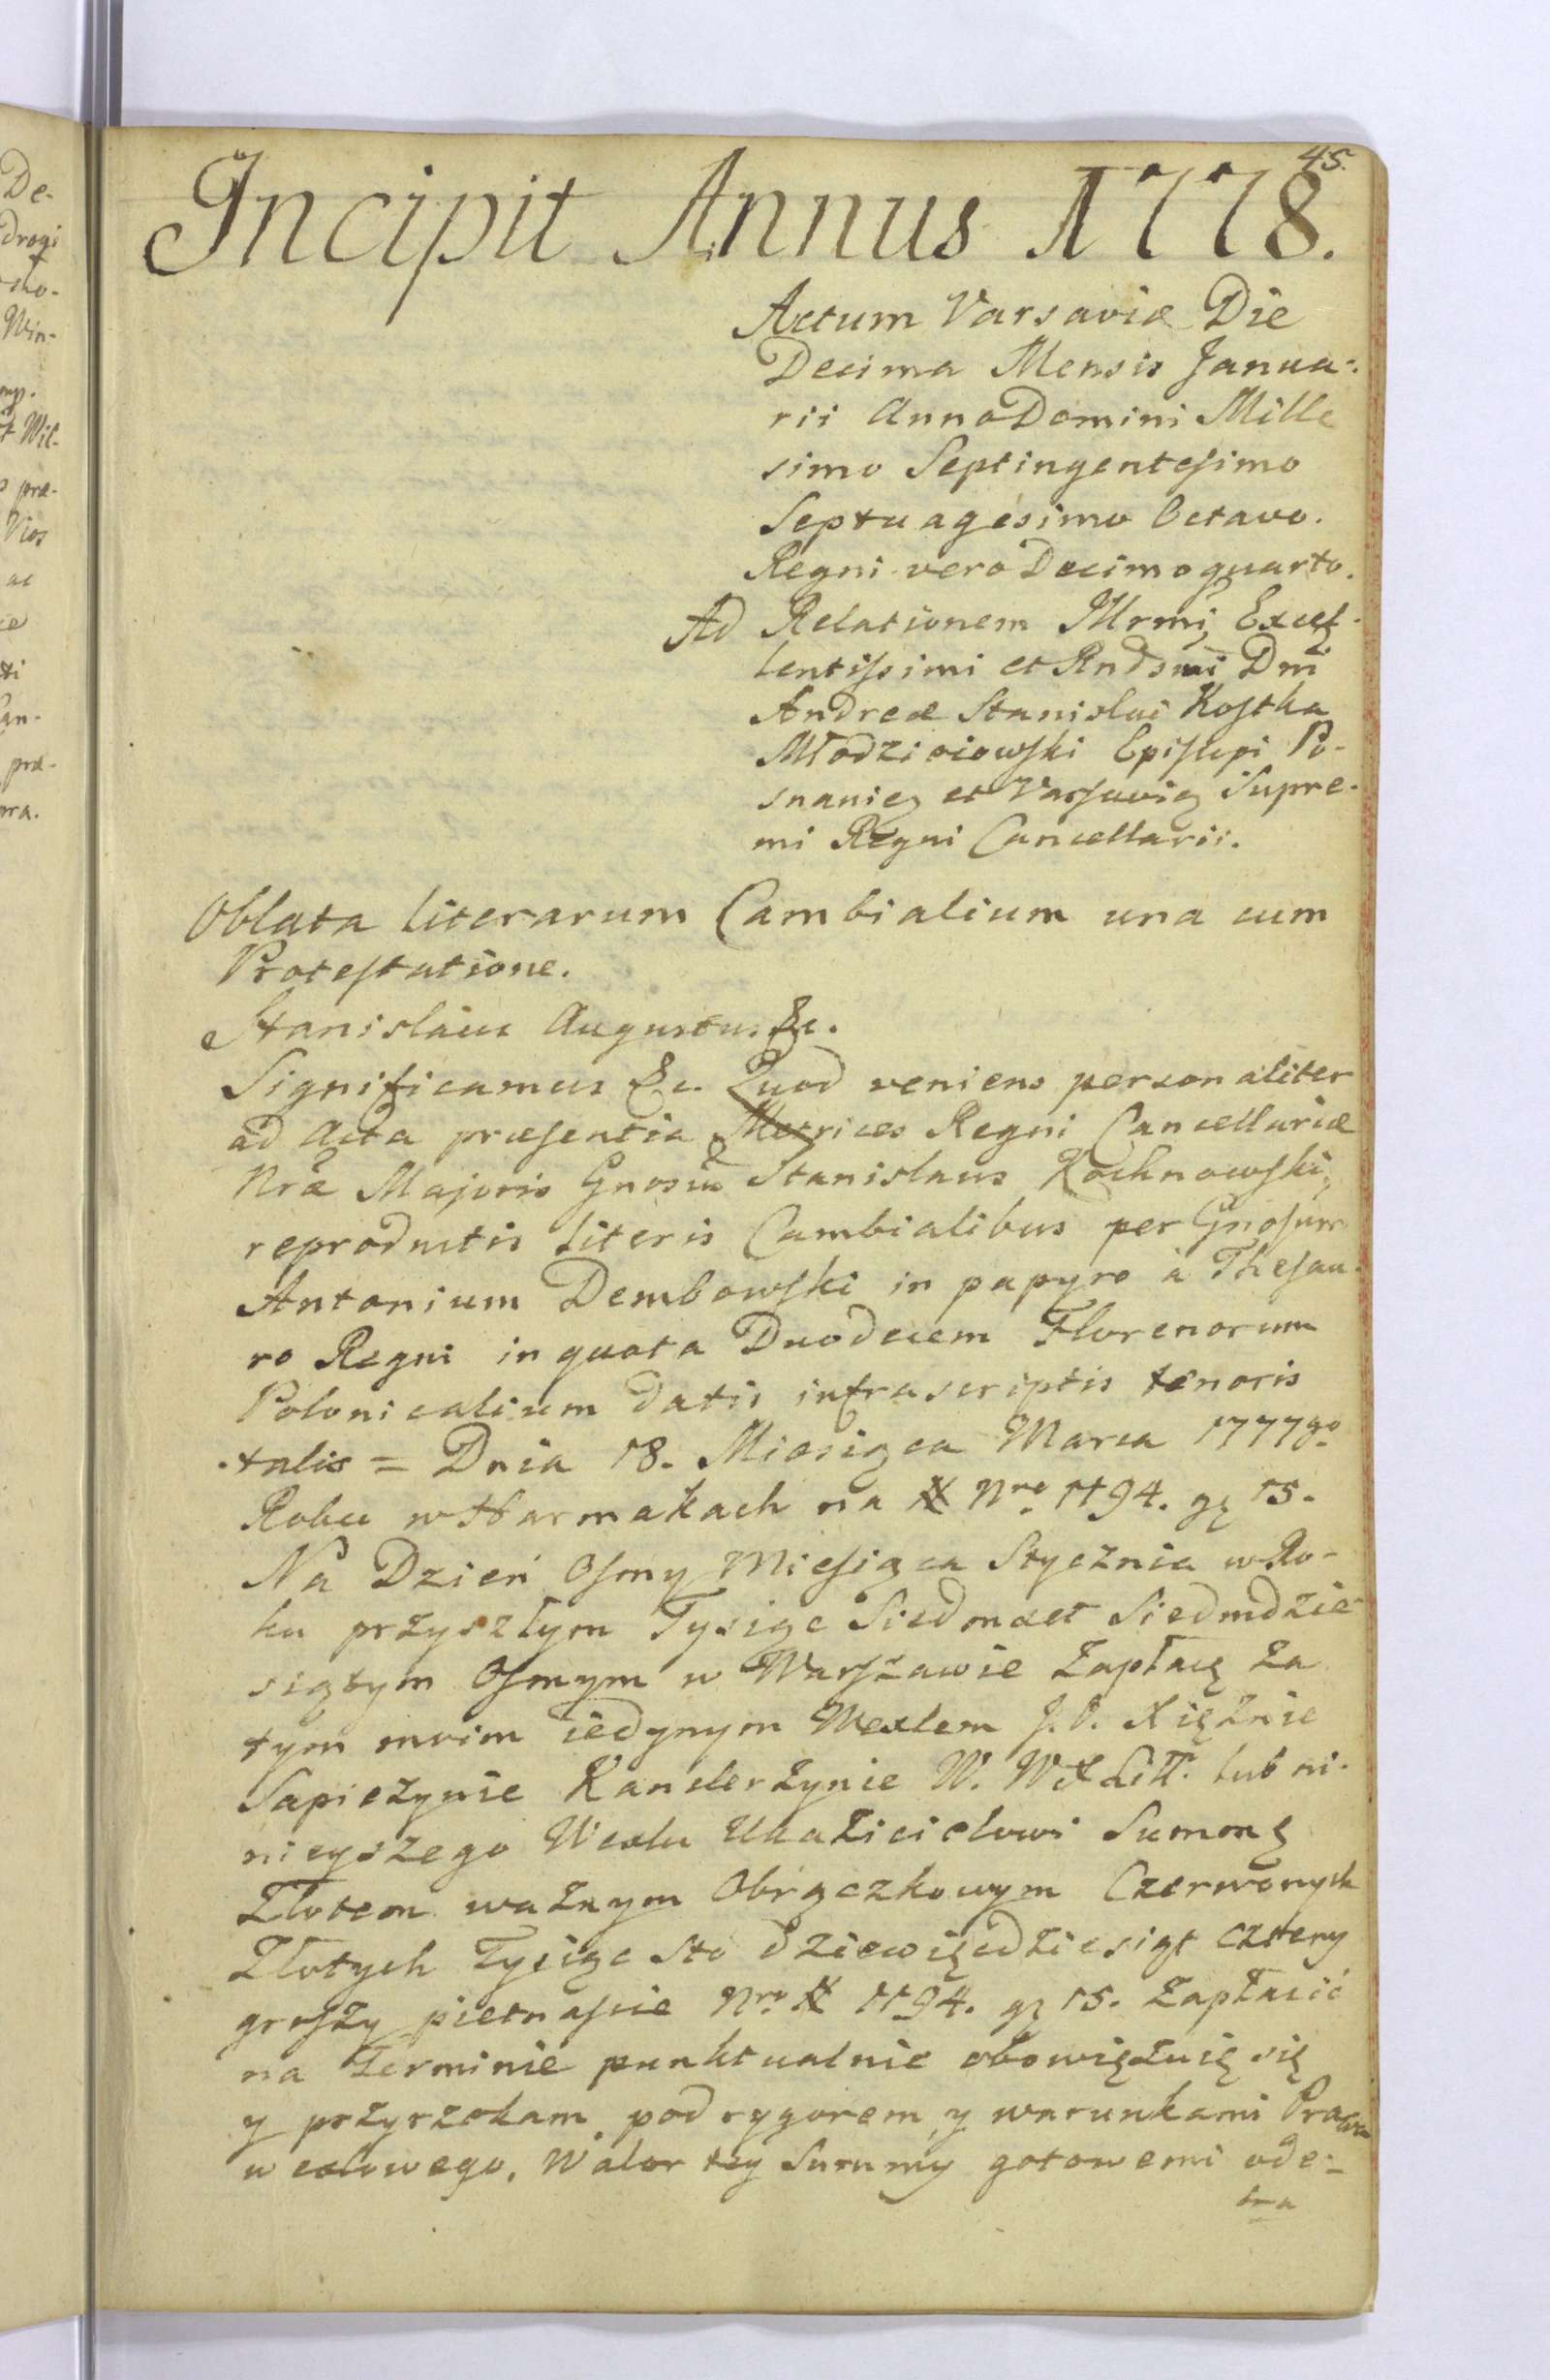 45.
Incipit Annus 1778.
Actum Varsaviæ Die
Decima Mensis Janua-
rii Anno Domini Mille
simo Septingentesimo
Septuagesimo Octavo.
Regni vero Decimo quarto.
Ad Relationem Illrmi, Excel-
lentissimi et Rndsmi Dni
Andreæ Stanislai Kostka
Młodzieiowski Episcopi Po-
snanię et Varsavię Supre-
mi Regni Cancellarii.
Oblata Literarum Cambialium una cum
Protestatione.
Stanislaus Augustus &c.
Significamus &c. Quod veniens personaliter
ad Acta præsentia Metrices Regni Cancellariæ
Nræ Majoris Gnosus Stanislaus Kochnowski,
reproductis Literis Cambialibus per Gnosum
Antonium Dembowski in papyro à Thesau-
ro Regni in quota Duodecem Florenorum
Polonicalium datis infrascriptis tenoris
talis = Dnia 18. Miesiąca Marca 1777go
Roku w Narmakach na # Nro 1194. gę 15.
Na Dzień Osmy Miesiąca Stycznia w Ro-
ku przyszłym Tysiąc Siedmset Siedmdzie-
siątym Osmym w Warszawie Zapłacę za
tym moim iedynym Wexlem J. O. Xiężnie
Sapieżynie Kanclerzynie W. W X Litt. lub ni-
nieyszego Wexlu Ukazicielowi Summę
Złotem ważnym Obrączkowym Czerwonych
Złotych Tysiąc Sto dziewięćdziesiąt cztery
groszy pietnascie Nro # 1194. gę 15. Zapłacić
na Terminie punktualnie obowięzuię się
y przyrzekam pod rygorem y warunkami Prawa
wexlowego. Walor tey Summy gotowemi ode-
bra